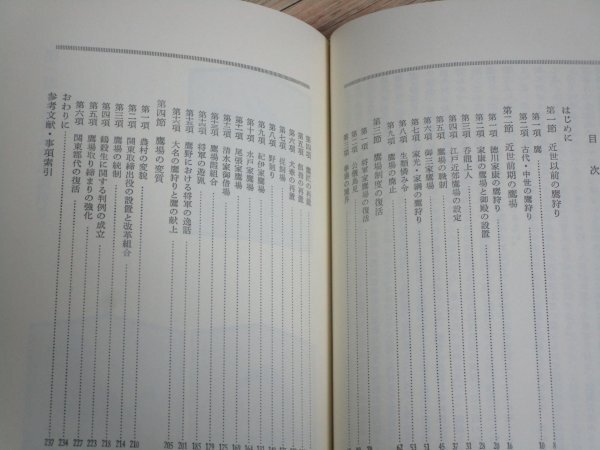 目次
はじめに
第一節 近世以前の鷹狩り
第一項 鷹 8
第二項 古代・中世の鷹狩り 10
第二節 近世前期の鷹場 16
第一項 徳川家康の鷹狩り
第二項 家康の鷹場と御殿の設置 20
第三項 呑龍上人 28
第四項 江戸近郊鷹場の設定 31
第五項 鷹場の職制
第六項 御三家鷹場 45
第七項 家光・家綱の鷹狩り 51
第八項 生類憐み令 53
第九項 鷹場の廃止 62
第三節 鷹場制度の復活
第一項 将軍家鷹場の復活
第二項 公儀鳥見
第三項
第四項 の再置
第五項 の再置
第六項
第七項
第八項 野廻り
第九項 紀伊家鷹場
第十項 水戸家鷹場
第十一項 尾張家鷹場
第十二項 清水家御借場
第十三項 鷹場組合
第十四項 将軍の遊猟
第十五項 鷹野における将軍の逸話 201
第十六項 大名の鷹狩りと鷹の献上 205
第四節 鷹場の変質
第一項 農村の変貌 210
第二項 関東取締出役の設置と改革組合 214
第三項 鷹場の統制 218
第四項 鶴殺生に関する判例の成立 223
第五項 鷹場取り締まりの強化 227
第六項 関東郡代の復活 232
おわりに 234
参考文献・事項索引 237